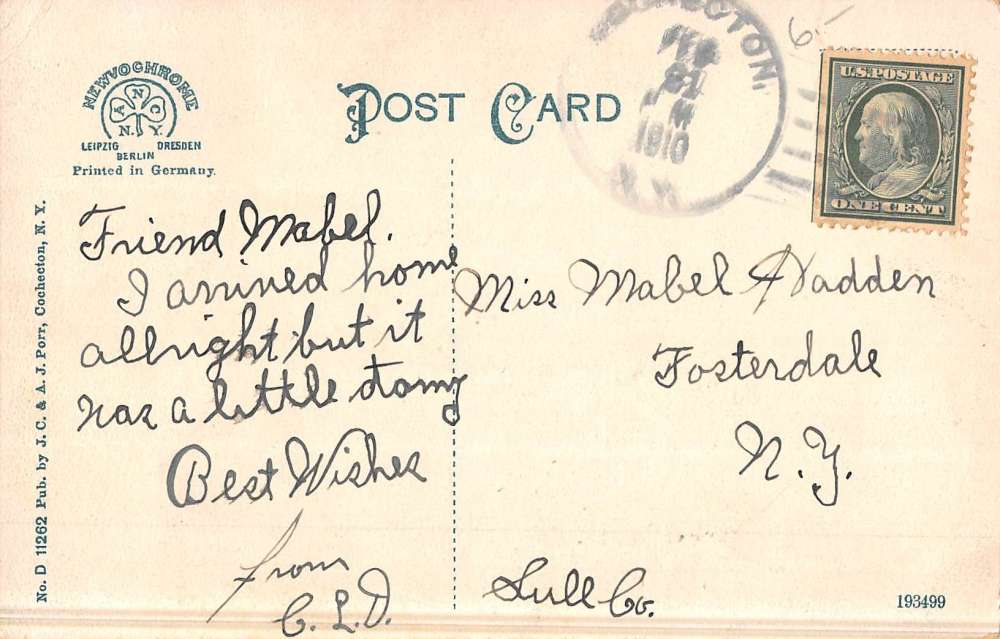 NEWVOCHROME
A N C
N. Y.
LEIPZIG DRESDEN
BERLIN
Printed in Germany.
POST CARD
FEB
1910
N.Y.
U.S. POSTAGE
ONE CENT
No. D 11262 Pub. by J. C. & A. J. Porr, Cochecton, N. Y.
Friend Mabel.
I arrived home
allright but it
was a little stormy
Best Wishes
from
C. L. D.
Miss Mabel Hadden
Fosterdale
N.Y.
Sull Co.
193499